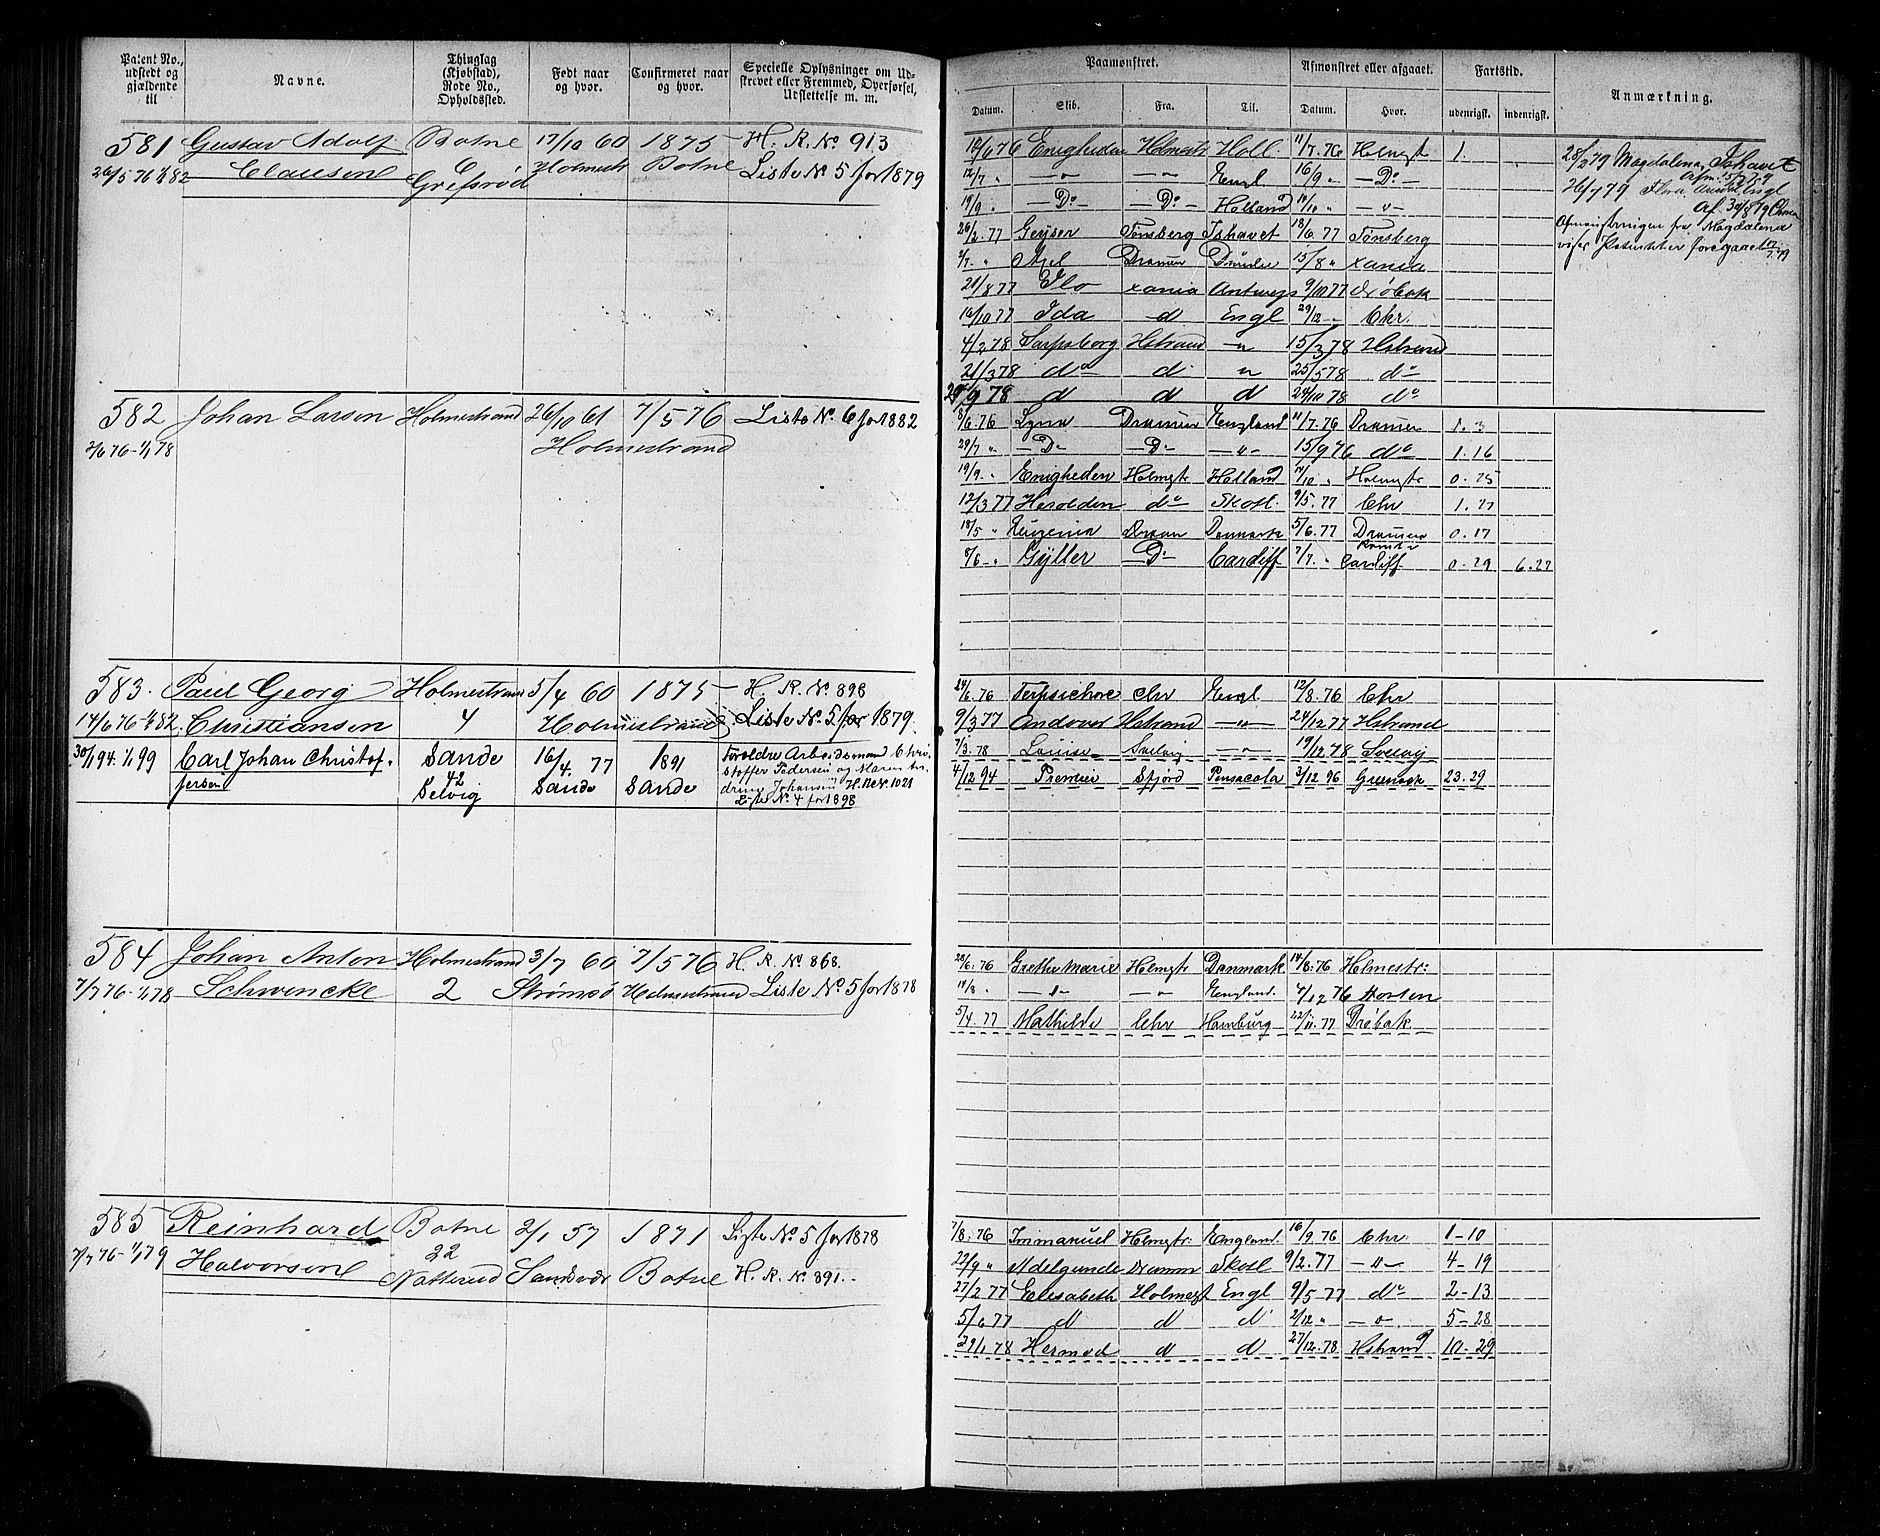 Patent No., udstedt og gjældende til
Navne.
Thinglag (Kjøbstad), Rode No., Opholdssted.
Født naar og hvor.
Confirmeret naar og hvor.
Specielle Oplysninger om Udskrevet eller Fremmed, Overførsel, Udslettelse m. m.
581 Gustav Adolf Botne 17/10 60 1875 H. R. No 913
26/5 76 1/1 82 Clausen 6 Holmestr Botne Liste No 5 for 1879
Grefsrød
582 Johan Larsen Holmestrand 26/10 61 7/5 76 Liste No. 6 for 1882
2/6 76 - 1/1 78 Holmestrand
583. Paul Georg Holmestrand 5/4 60 1875 H. R. No 898
14/6 76 - 1/1 82. Christiansen 4 Holmestrand Liste No. 5 for 1879.
30/1 94. 1/1 99 Carl Johan Christof- Sande 16/4. 77 1891 Foroldre Arbeidsmand Chri-
fersen 42 Sande Sande stoffer Pedersen og Maren
Selvig Johansen H. R. No. 1021
Liste No. 4 for 1898
584 Johan Anton Holmestrand 3/7 60 7/5 76 H. R. No 868.
7/7 76 - 1/1 78 Schwencke 2 Strømsø Holmestrand Liste No 5 for 1878
585 Reinhard Botne 2/1 57 1871 Liste No 5 for 1878
7/7 76 - 1/1 79 Halvorsen 22 Sandsvær Botne H. R. No. 891.
Natterud
Paamønstret. Afmønstret eller afgaaet. Fartstid. Anmærkning.
Datum. Skib. Fra. Til. Datum. Hvor. udenrigsk. indenrigsk.
10/6 76 Enigheden Holmestr Holl. 11/7. 76 Holmgst 1.
12/7 " — " — — " — Engl 16/9 " — Do —
19/9 " — Do — — Do — Holland 14/10 " — " —
26/2. 77 Geyser Tønsberg Ishavet 18/6 77 Tønsberg
2/7. " Axel Dramn 15/8 " xania
21/8 77 Flo xania Antwerp 9/10 77 Drøbak
16/10 77 Ida d Engl 29/12 - Chr.
4/2 78 Sarpsborg Hstrand — " 15/3 78 Hstrand
21/3 78 do d " 25/5 78 do
9 78 d d d 24/10 78 do
28/2 79 Magdalena, Ishavet
Afm. 15/7 79
26/7 79 Flora Engl
Af. 30/8 79
Afmønstringen fra Magdalena
viser Patentet foregaaet
8/6. 76 Lyna Dramn England 11/7. 76 Dramn 1. 3
29/7 " — D — — D — — " — 15/9 76 do 1. 16
19/9. " Enigheden Holmstr Holland 14/10 " Holmstr 0. 25
12/3 77 Harolden do Skotl. 9/5. 77 Chr 1. 27
18/5 " Eugenia Dramn Danmark 5/6. 77 Dramn 0. 17
8/6 - " Gyller — D — Cardiff 7/7. " Cardiff 0. 29 6. 27
24/6. 76 Terpsichore Chr Engl 12/8. 76 Chr
9/3 77 Andover Hstrand — " — 24/12 77 Hstrand
7/3. 78 Louise Svelvig — " — 19/12 78 Svelvig
4/12 94 Sfjord Pensacola 3/12 96 Greenock 23. 29
28/6. 76 Grethe Marie Holmstr Danmark 14/8. 76 Holmestr.
19/8 " — " — — " England. 4/12 76 Horten
5/4. 77 Mathilde Chr Hamburg 22/11. 77 Drøbak
7/8. 76 Immanuel Holmstr. England. 16/9. 76 Chr. 1 - 10
22/9 " Adelgunde Dramn Skotl 9/2. 77 — " — 4 - 19
27/2 77 Elisabeth Holmest Engl 9/5 77 do 2 - 13
5/6 77 d d d 2/12 " — " . 5 - 28
29/1 78 Hermod d d 27/12. 78 Hstrand 10 - 29